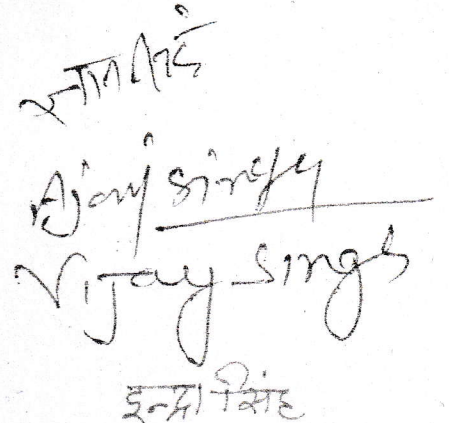 Ajay Singh
Vijay Singh
इन्द्रा सिंह